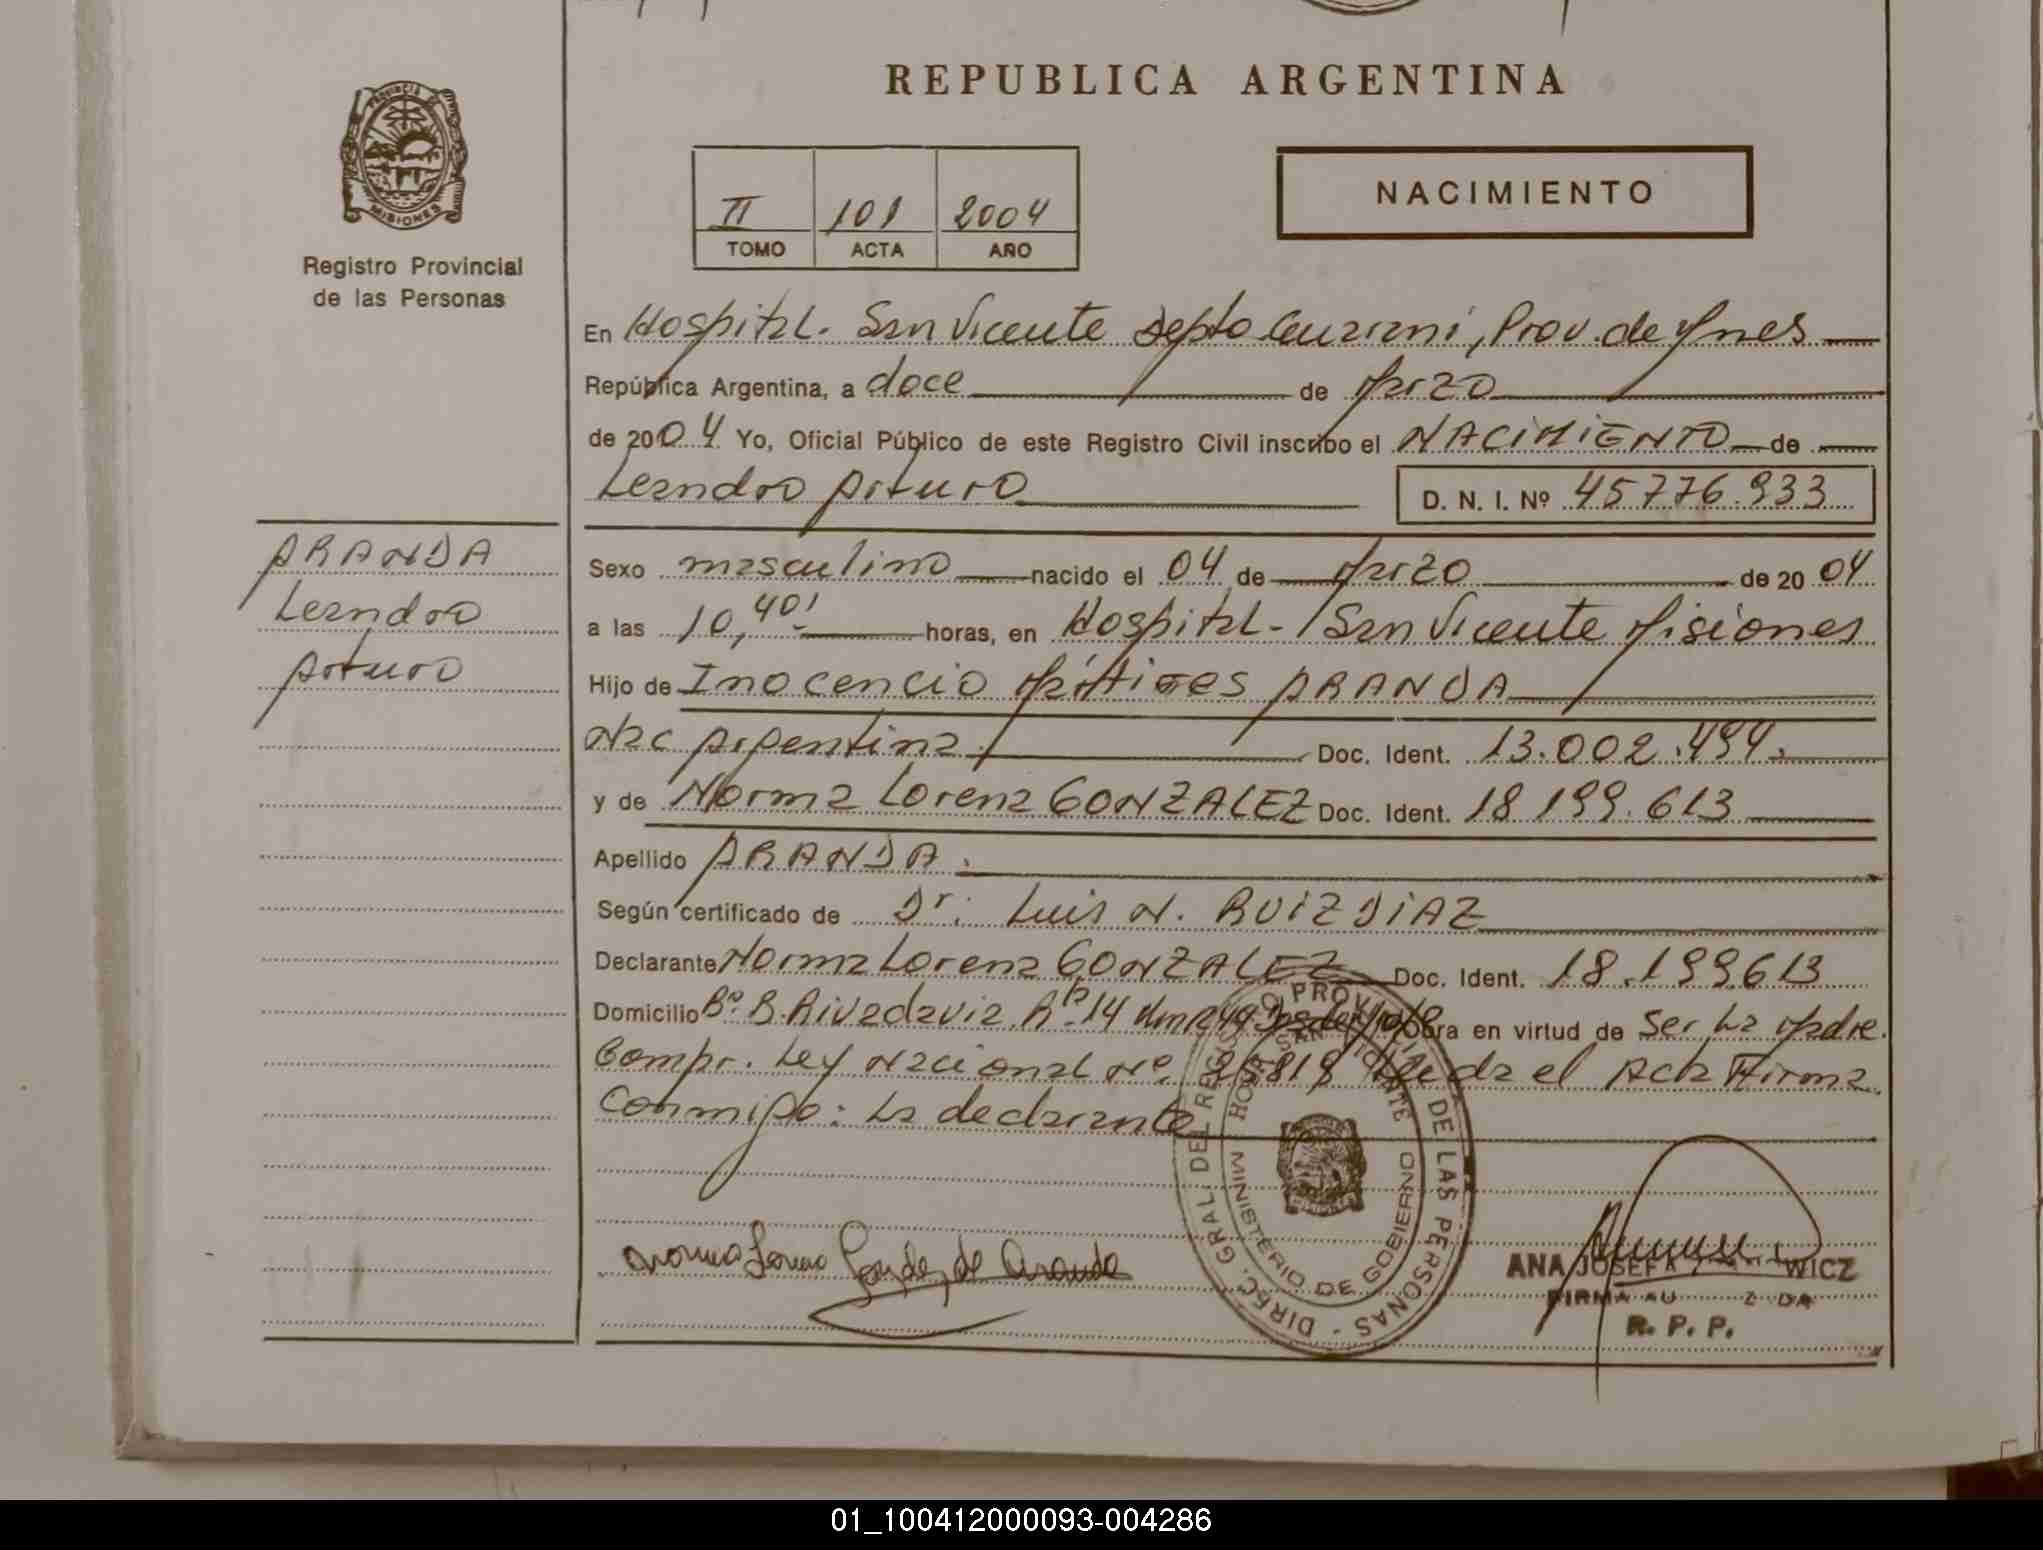 REPUBLICA ARGENTINA
PROVINCIA DE
MISIONES
Registro Provincial
de las Personas
II 101 2004
TOMO ACTA AÑO
NACIMIENTO
En Hospital. San Vicente Depto Guaraní, Prov. de Mnes
República Argentina, a doce de Marzo
de 2004 Yo, Oficial Público de este Registro Civil inscribo el NACIMIENTO de
Leandro Arturo D. N. I. Nº 45776.933
ARANDA
Leandro
Arturo
Sexo masculino nacido el 04 de Marzo de 20 04
a las 10,40' horas, en Hospital - San Vicente Misiones
Hijo de Inocencio ARANDA
Nac Argentina. Doc. Ident. 13.002.494.
y de Norma Lorena GONZALEZ Doc. Ident. 18 199.613
Apellido ARANDA.
Según certificado de Dr. Luis N. RUIZ DIAZ
Declarante Norma Lorena GONZALEZ Doc. Ident. 18.199613
Domicilio Bº B. Rivadavia 14 obra en virtud de Ser La Madre.
Compr. Ley Nacional Nº 25819 Leída el Acta Firma
Conmigo: La declarante
DIREC. GRAL DEL REGISTRO PROVINCIAL DE LAS PERSONAS -
HOSP. SAN VICENTE
MINISTERIO DE GOBIERNO
Norma Lorena González de Aranda
ANA JOSEFA WICZ
FIRMA
R. P. P.
01_100412000093-004286